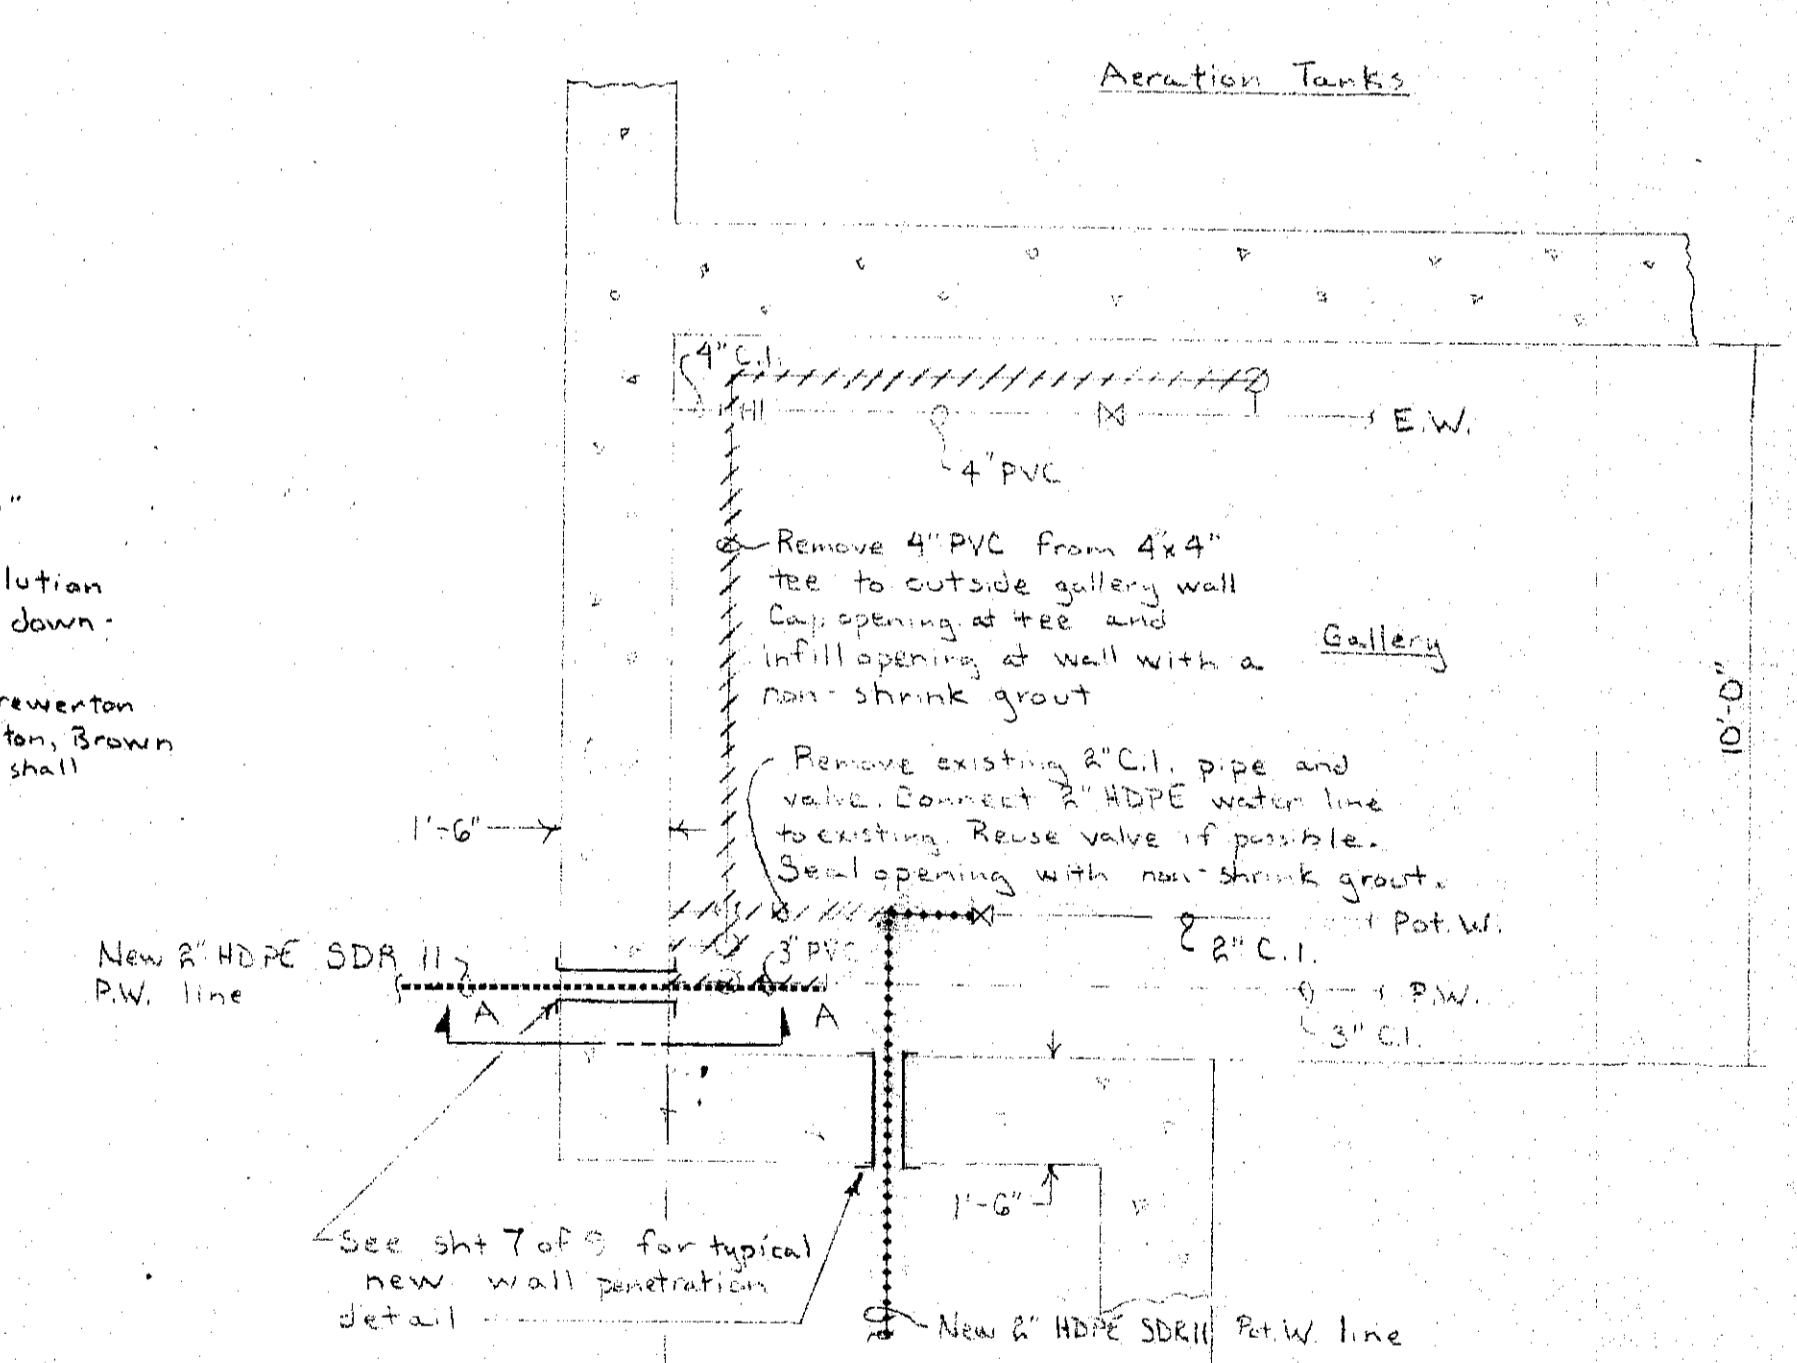 Aeration Tanks
4" C.I.
E.W.
4" PVC
"
lution
down-
rewerton
ton, Brown
shall
Remove 4" PVC from 4"x4"
tee to outside gallery wall
Cap opening at tee and
infill opening at wall with a
non-shrink grout
Gallery
10'-0"
Remove existing 2" C.I. pipe and
valve. Connect 2" HDPE water line
to existing. Reuse valve if possible.
Seal opening with non-shrink grout.
1'-6"
Pot. W.
2" C.I.
New 2" HDPE SDR 11
P.W. line
3" PVC
P.W.
3" C.I.
A
A
1'-6"
See sht 7 of 9 for typical
new wall penetration
detail
New 2" HDPE SDR11 Pot. W. line